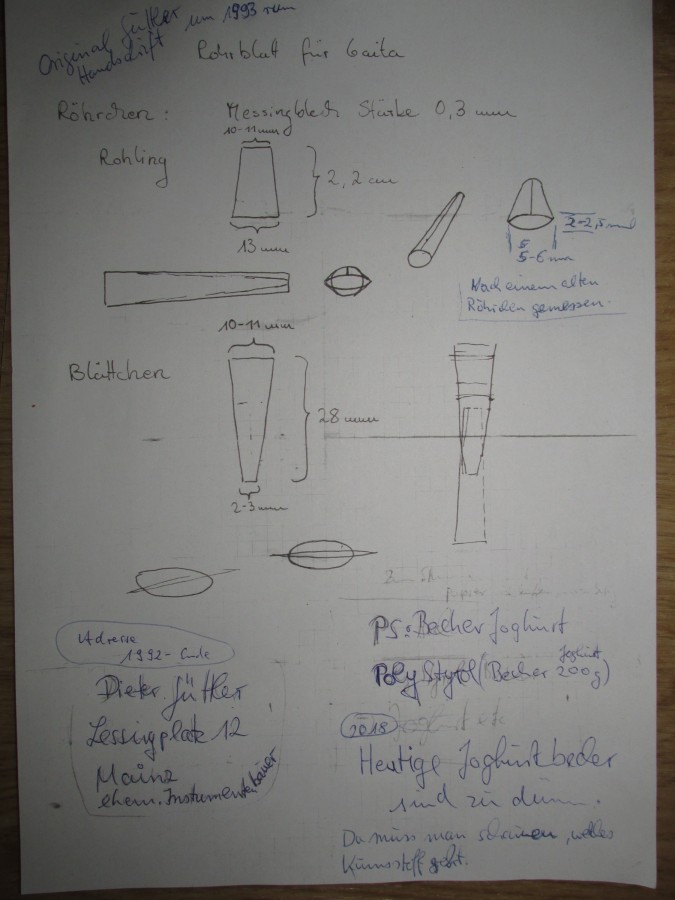 Original Güttler um 1993
Handschrift
Rohrblatt für Gaita
Röhrchen: Messingblech Stärke 0,3 mm
10-11 mm
Rohling
2,2 cm
13 mm
2-2,5 mm
5
5-6 mm
Nach einem alten
Röhrchen gemessen.
10-11 mm
Blättchen
28 mm
2-3 mm
Adresse
1992- Ende
Dieter Güttler
Lessingplatz 12
Mainz
ehem. Instrumentenbauer
PS: Becher Joghurt
Poly Styrol (Becher Joghurt 200g)
2018
Heutige Joghurtbecher
sind zu dünn.
Da muss man schauen, welches
Kunnsstoff geht.